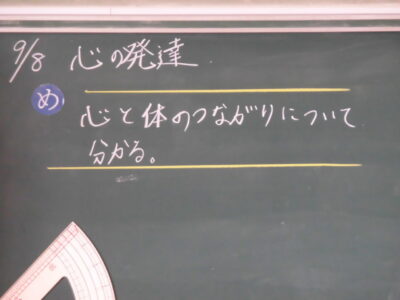 9/8 心の発達
め
心と体のつながりについて
分かる。